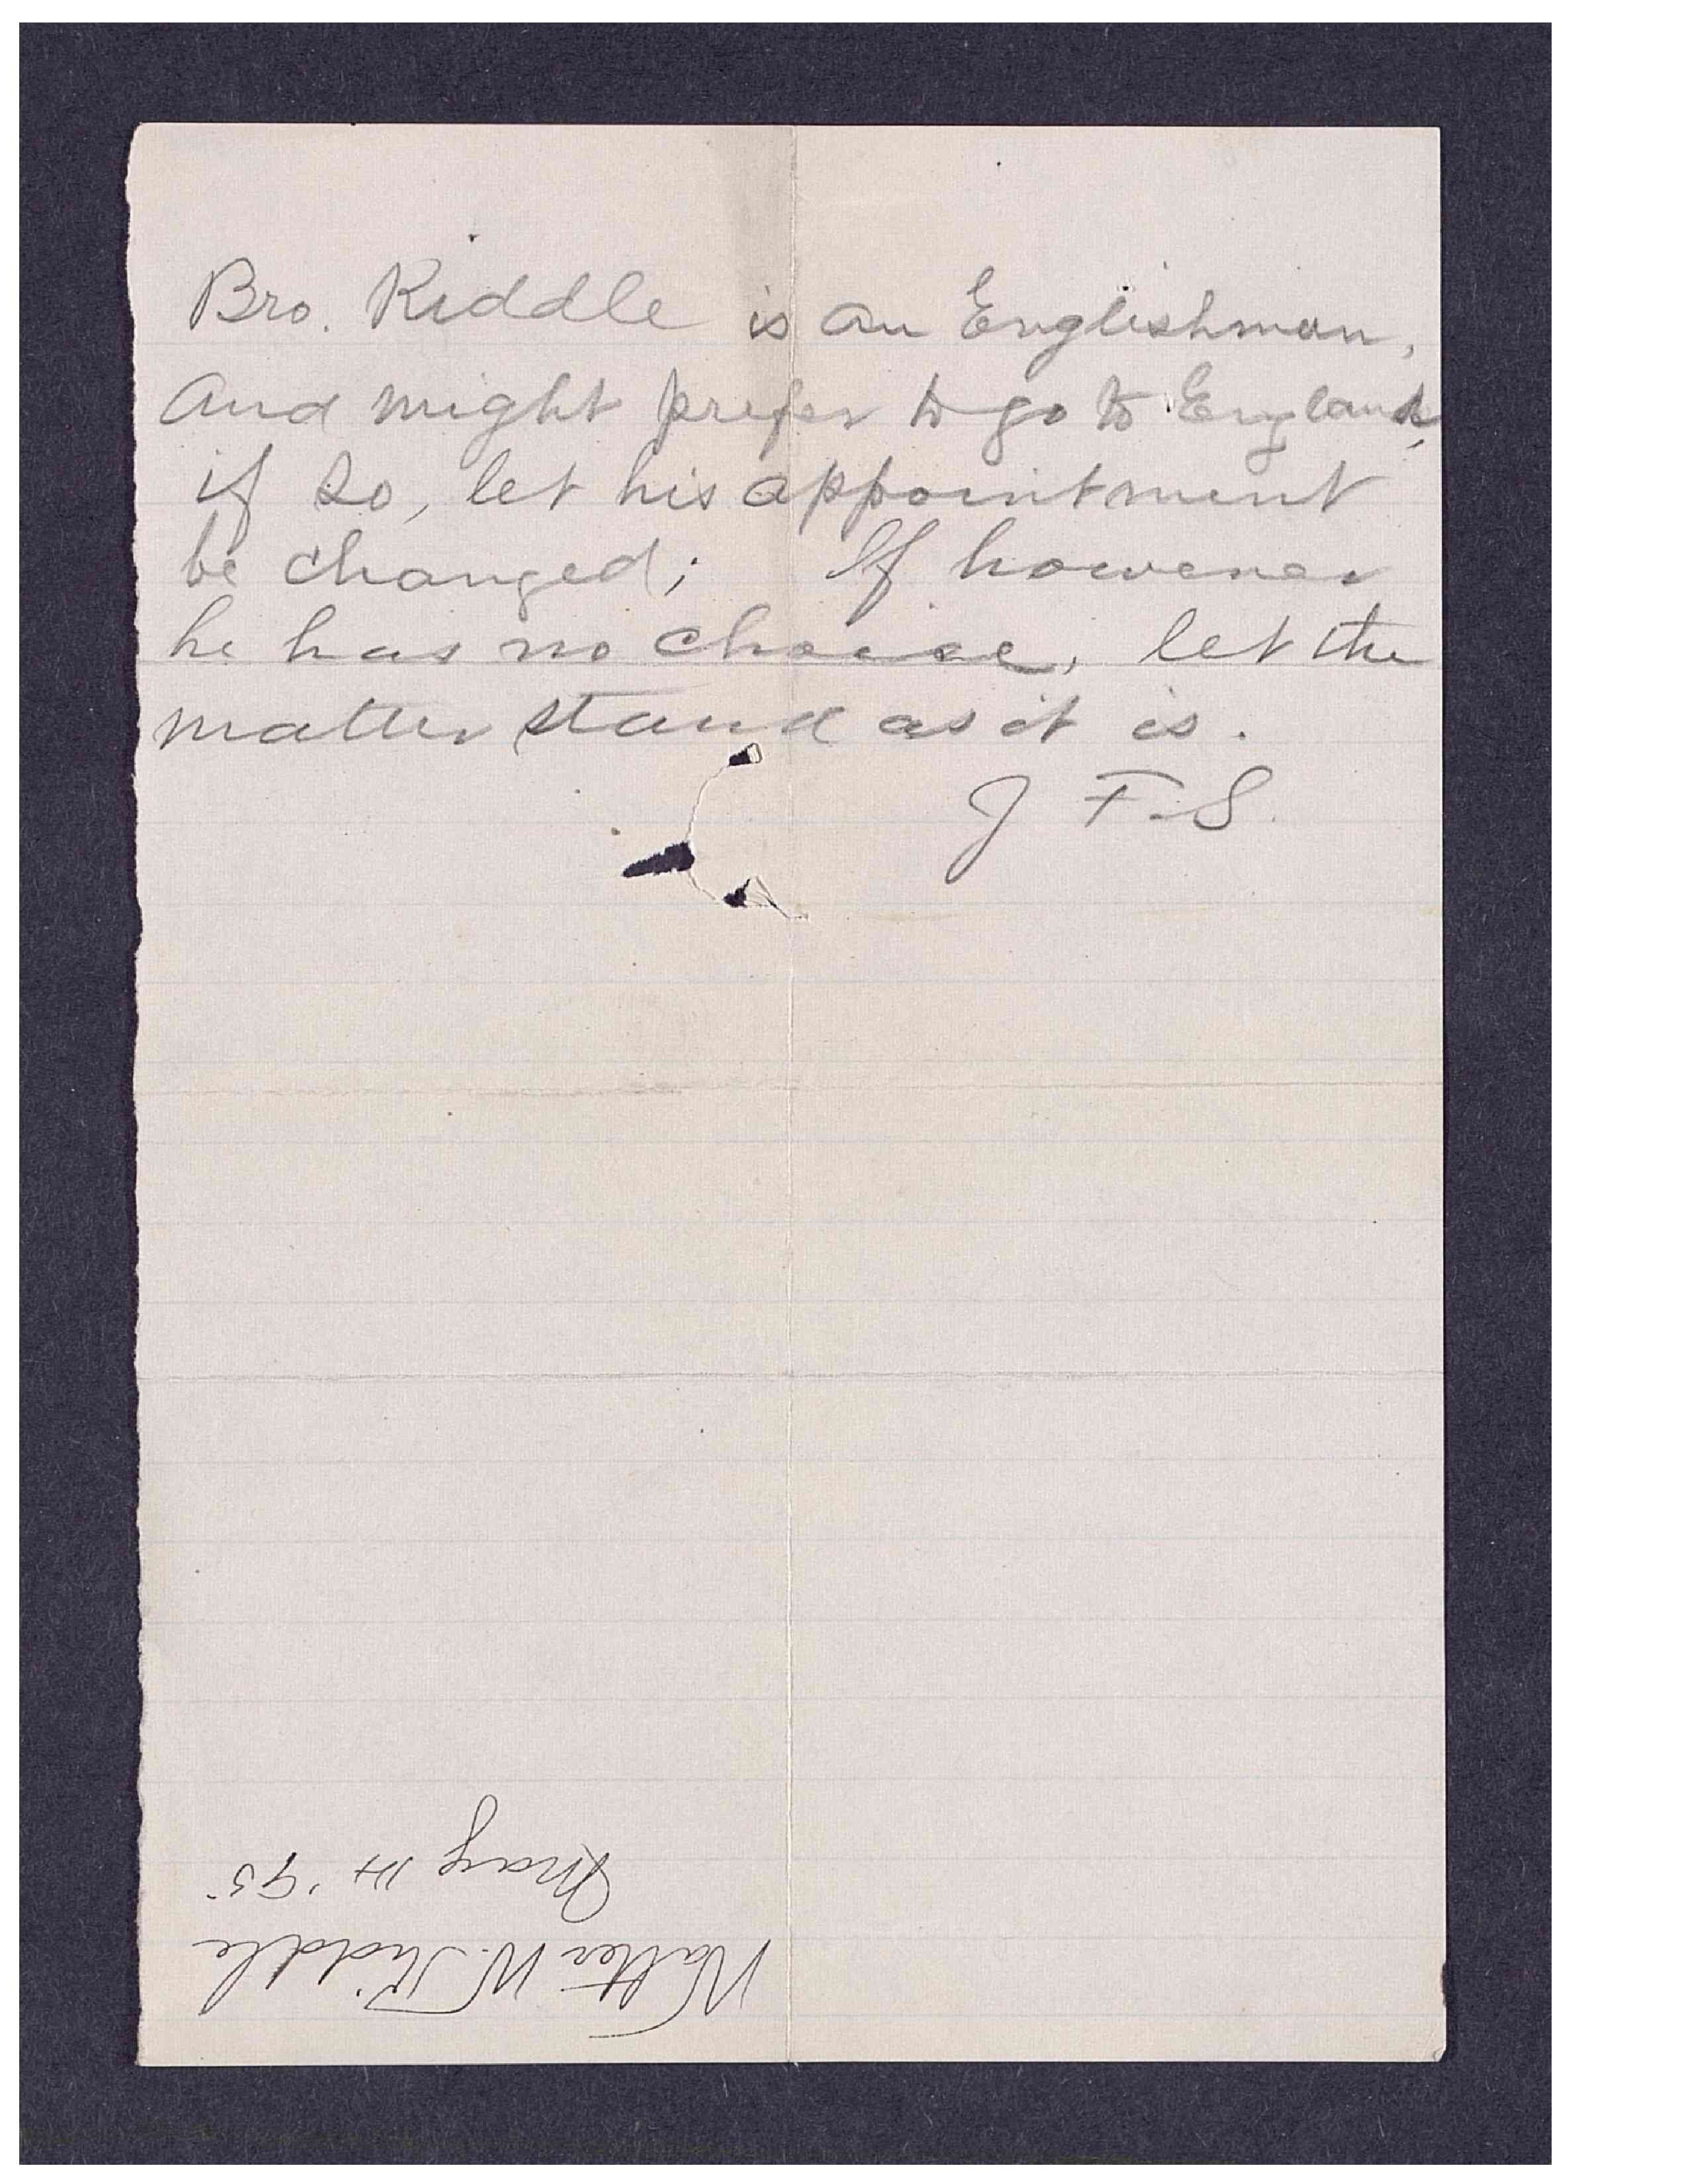 Bro. Riddle is an Englishman,
and might prefer to go to England,
if so, let his appointment
be changed; If however
he has no choice, let the
matter stand as it is.
J F. S.
Walter W. Riddle
May 14 '95